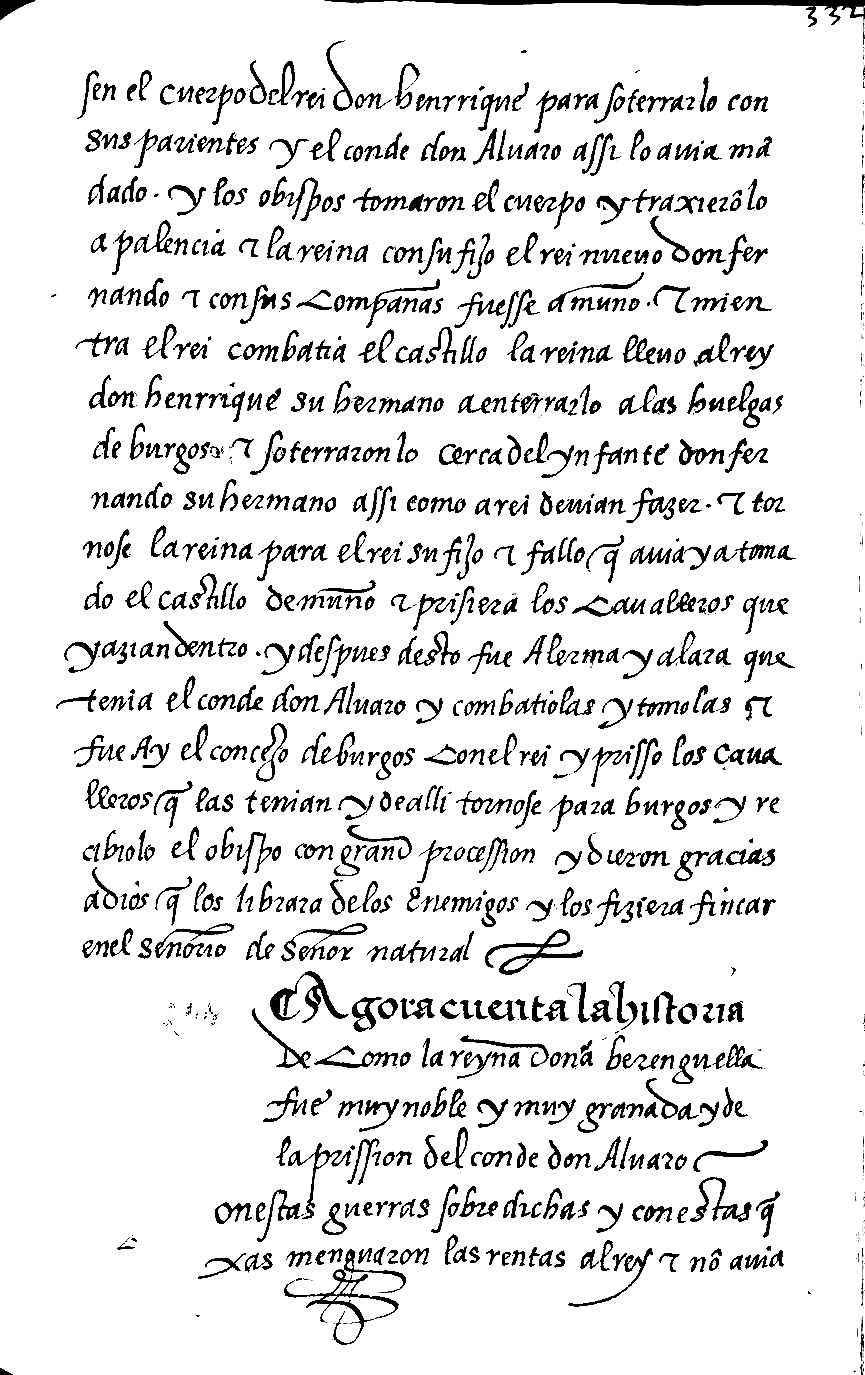 332
sen el cuerpo del rei don henrrique para soterrarlo con
sus parientes y el conde don Alvaro assi lo auia mã
dado. y los obispos tomaron el cuerpo y traxierõlo
a palencia τ la reina con su fijo el rei nueuo don fer
nando τ con sus Compañas fuesse a muño. τ mien
tra el rei combatia el castillo la reina lleuo al rey
don henrrique su hermano a enterrarlo a las huelgas
de burgos τ soterraronlo cerca del ynfante don fer
nando su hermano assi como a rei deuian fazer. τ tor
nose la reina para el rei su fijo τ fallo q̃ auia ya toma
do el castillo de muño τ prisiera los Caualleros que
yazian dentro. y despues desto fue A lerma y a lara que
tenia el conde don Alvaro y combatiolas y tomolas τ
fue Ay el concejo de burgos Con el rei y prisso los caua
lleros q̃ las tenian y de alli tornose para burgos y re
cibiolo el obispo con grand procession y dieron gracias
a dios q̃ los librara de los Enemigos y los fiziera fincar
en el señorio de señor natural
¶ Agora cuenta la historia
De Como la reyna doña berenguella
fue muy noble y muy granada y de
la prission del conde don Alvaro
on estas guerras sobre dichas y con estas q̃
xas menguaron las rentas al rey τ nõ auia